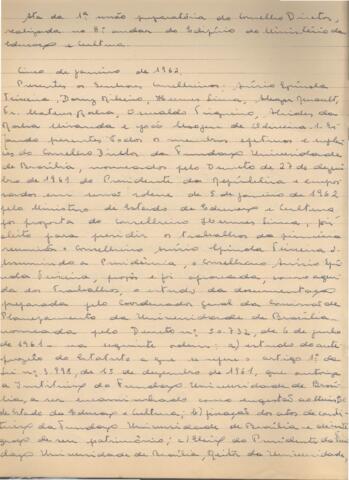 Ata da 1ª reunião preparatória do Conselho Diretor,
realizada no 8º andar do Edifício do Ministério da
Educação e Cultura.
Cinco de janeiro de 1962.
Presentes os Senhores Conselheiros: Anísio Spínola
Teixeira, Darcy Ribeiro, Hermes Lima, Abgar Renault,
Fr. Mateus Rocha, Oswaldo Trigueiro, Alcides da
Rocha Miranda e João Moojen de Oliveira. 1. Es-
tando presentes todos os membros efetivos e suplen-
tes do Conselho Diretor da Fundação Universidade
de Brasília, nomeados pelo Decreto de 27 de dezem-
bro de 1961 do Presidente da República e empos-
sados em sessão solene de 5 de janeiro de 1962
pelo Ministro de Estado da Educação e Cultura
foi proposta do Conselheiro Hermes Lima, foi
eleito para presidir os trabalhos da primeira
reunião o Conselheiro Anísio Spínola Teixeira. 2.
Assumindo a Presidência, o Conselheiro Anísio Spí-
nola Teixeira, propôs e foi aprovada, como agen-
da dos trabalhos, o estudo da documentação
preparada pelo Coordenador Geral da Comissão de
Planejamento da Universidade de Brasília
nomeada pelo Decreto nº 50.732, de 6 de junho
de 1961 na seguinte ordem: a) estudo do ante-
projeto de Estatuto a que se refere o artigo 1º da
Lei nº 3.998, de 15 de dezembro de 1961, que autoriza
a Instituição da Fundação Universidade de Brasí-
lia, a ser encaminhado como sugestão ao Ministro
de Estado da Educação e Cultura; b) fixação dos atos de consti-
tuição da Fundação Universidade de Brasília e de inte-
gração de seu patrimônio; c) Eleição do Presidente da Fun-
dação Universidade de Brasília, Reitor da Universidade,